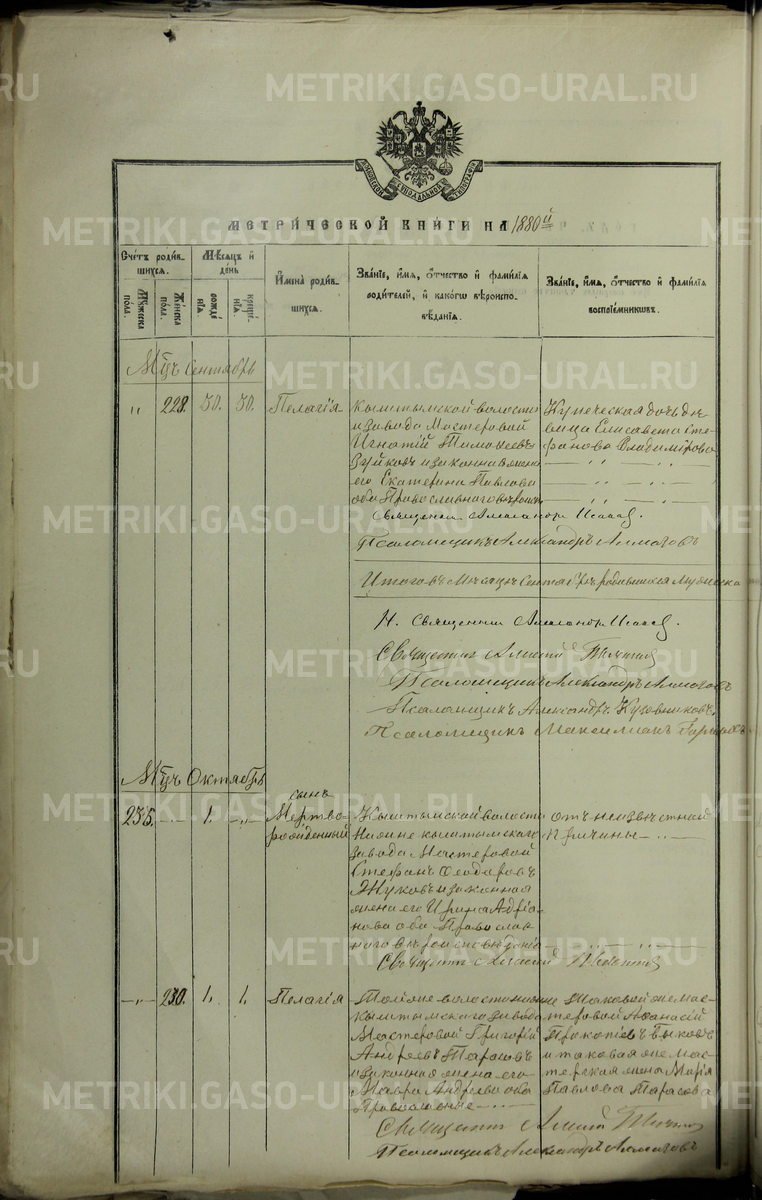 МЕТРИЧЕСКОЙ КНИГИ НА 1880й
Счетъ родившихся.
Мѣсяцъ и день
Имена родившихся.
Званіе, имя, отчество и фамилія родителей, и какого вѣроисповѣданія.
Званіе, имя, отчество и фамилія воспріемниковъ.
Мужеска пола.
Женска пола.
рожденія.
крещенія.
Мцъ Сентябрь
228. 30. 30. Пелагія
Кыштымской волости
и завода Мастеровой
Игнатій Тимофеевъ
Зуйковъ и законная жена
его Екатерина Павлова
оба Православнаго
Купеческая дочь дѣ-
вица Елисавета Сте-
фанова Владимірова
Священник Александр Исаков.
Псаломщикъ Александръ Алмазовъ
Итого въ Мѣсяцѣ Сентябрѣ родившихся Мужеска
Священник Александр Исаков.
Священникъ Алексій
Псаломщикъ Александръ Алмазовъ
Псаломщикъ Александръ
Псаломщикъ Максимилианъ
Мцъ Октябрь
235. 1.
сынъ
Мертво-
рожденный
Кыштымской волости
Нижне кыштымскаго
завода Мастеровой
Стефанъ Феодоровъ
Жуковъ и законная
жена его Ирина Адріа-
нова оба Православ-
наго вѣроисповѣданія
отъ неизвѣстной
причины
Священникъ Алексій
230. 1. 1. Пелагія
Тоже волости нижне
кыштымскаго завода
Мастеровой Григорій
Андреевъ Тарасовъ
и законная жена его
Мавра Андреева оба
Православные
Таковой же мас-
теровой Афанасій
Прокопіевъ Быковъ
и таковая же мас-
терская жена Марія
Павлова Тарасова
Священникъ Алексій
Псаломщикъ Александръ Алмазовъ
METRIKI.GASO-URAL.RU